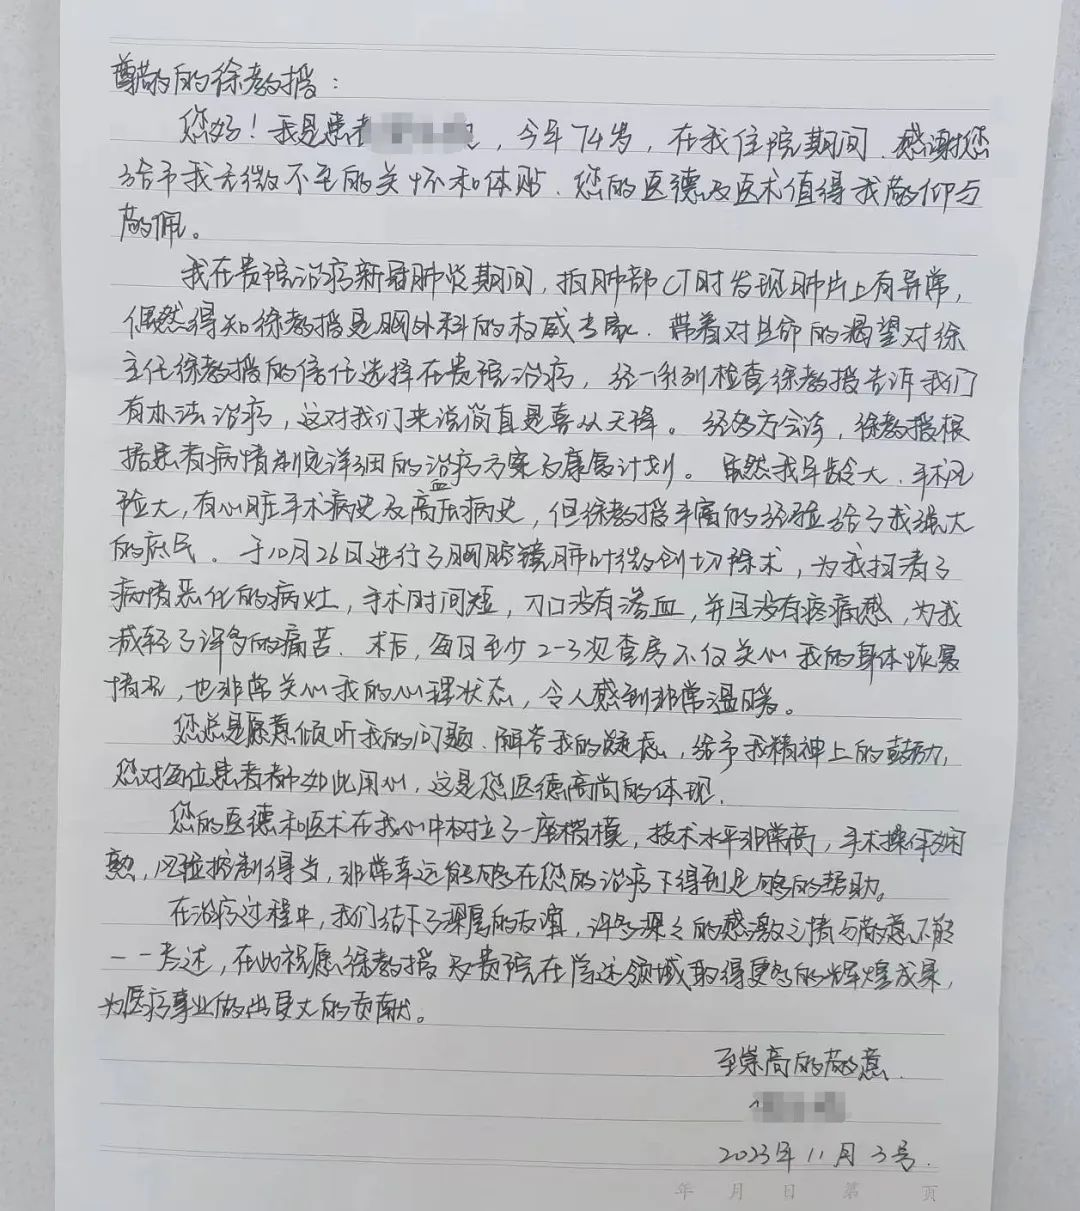 尊敬的徐教授：
您好！我是患者，今年74岁，在我住院期间、感谢您
给予我无微不至的关怀和体贴、您的医德及医术值得我敬仰与
敬佩。
我在贵院治疗新冠肺炎期间，拍肺部CT时发现肺片上有异常，
偶然得知徐教授是胸外科的权威专家、带着对生命的渴望对徐
主任徐教授的信任选择在贵院治疗，经一系列检查徐教授告诉我们
有办法治疗，这对我们来说简直是喜从天降。经多方会诊，徐教授根
据患者病情制定详细的治疗方案及康复计划。虽然我年龄大、手术风
险大，有心脏手术病史及高血压病史，但徐教授丰富的经验给了我强大
的底气。于10月26日进行了胸腔镜肺叶微创切除术，为我扫清了
病情恶化的病灶，手术时间短，刀口没有渗血，并且没有疼痛感，为我
减轻了许多的痛苦．术后，每日至少2-3次查房不仅关心我的身体恢复
情况，也非常关心我的心理状态，令人感到非常温暖。
您总是愿意倾听我的问题、解答我的疑惑，给予我精神上的鼓励，
您对每位患者都如此用心，这是您医德高尚的体现．
您的医德和医术在我心中树立了一座楷模，技术水平非常高，手术操作娴
熟，风险控制得当，非常幸运能够在您的治疗下得到足够的帮助。
在治疗过程中，我们结下了深厚的友谊，许多深深的感激之情与敬意不能
一一表述，在此祝愿徐教授及贵院在学术领域取得更多的辉煌成果，
为医疗事业做出更大的贡献。
至崇高的敬意．
2023年11月3号．
年 月 日 第 页